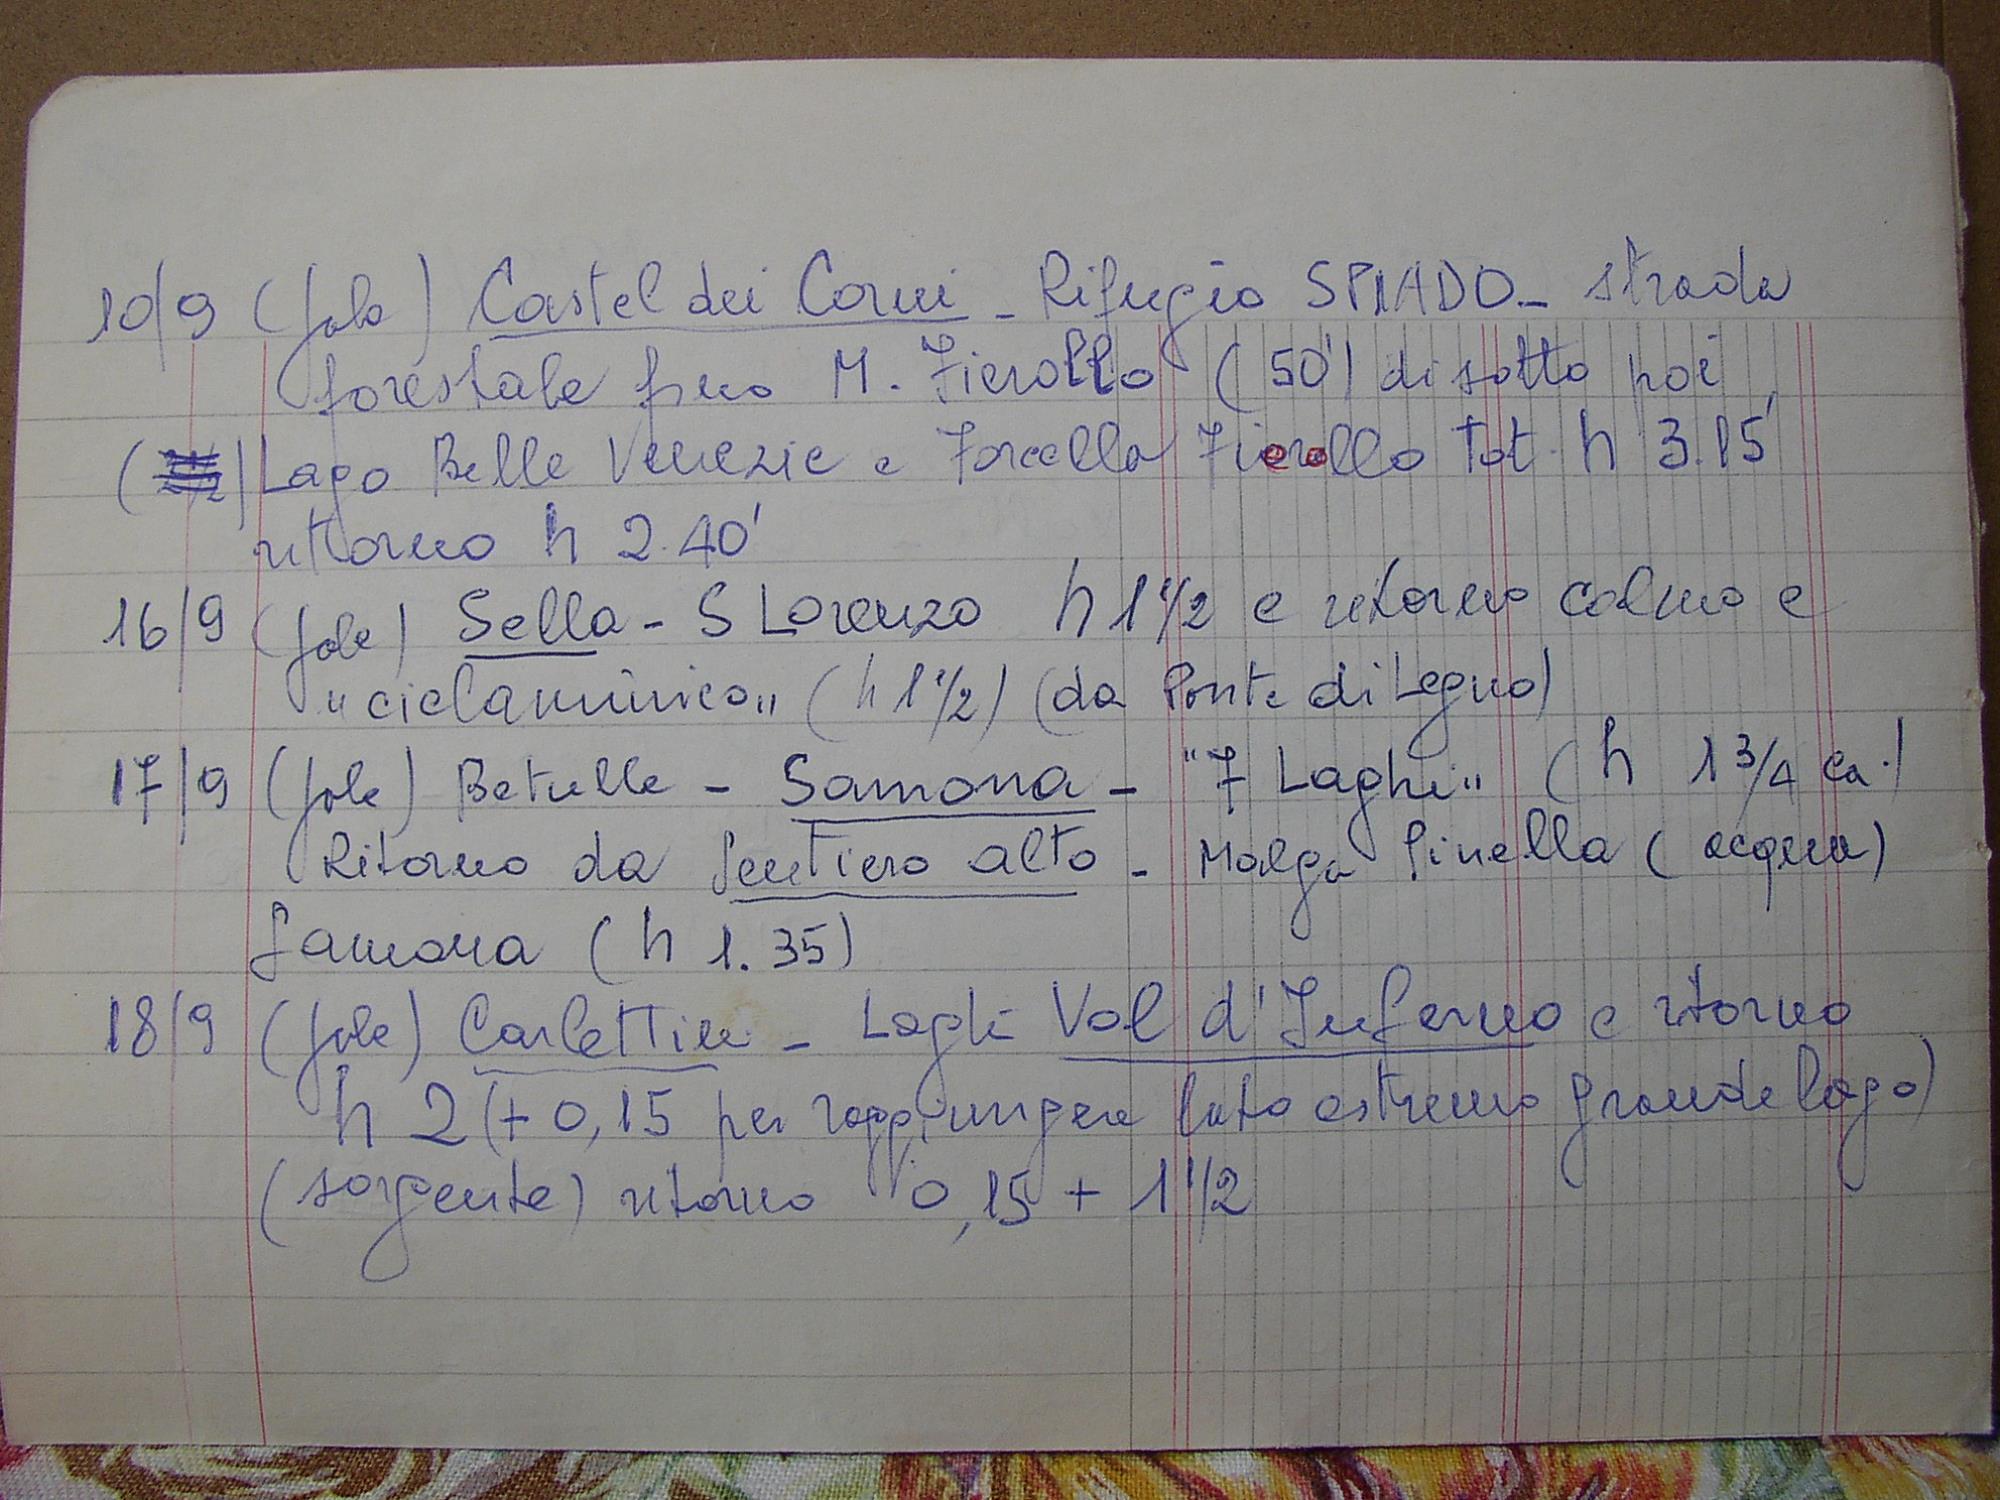 10/9 (Jole) Castel dei Corni - Rifugio SPIADO - strada
forestale fino M. Fierollo (50') di sotto poi
Lago Belle Venezie e Forcella Fierollo Tot. h 3.15'
ritorno h 2.40'
16/9 (Jole) Sella - S Lorenzo h 1 1/2 e ritorno calmo e
"ciclaminico" (h 1 1/2) (da Ponte di Legno)
17/9 (Jole) Betulle - Samona - "7 Laghi" (h 1 3/4 ca.)
Ritorno da Sentiero alto - Malga Pinella (acqua)
Samona (h 1.35)
18/9 (Jole) Carlettini - Laghi Val d'Inferno e ritorno
h 2 (+ 0,15 per raggiungere lato estremo grande lago)
(sorgente) ritorno 0,15 + 1 1/2